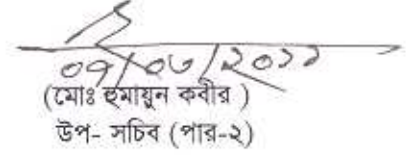 ০৭/০৬/২০১১
(মোঃ হুমায়ুন কবীর )
উপ- সচিব (পার-২)